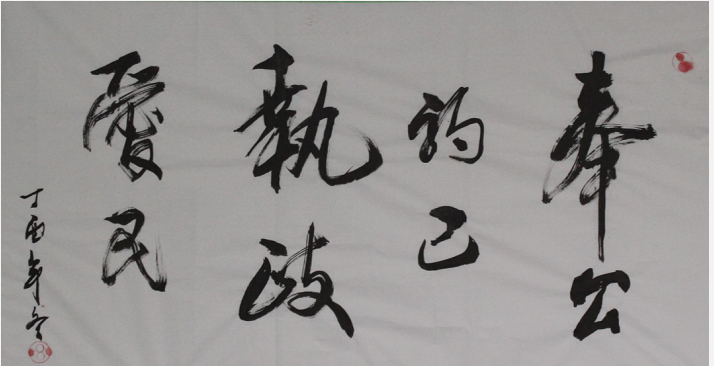 奉公
約己
執政
愛民
丁酉年冬